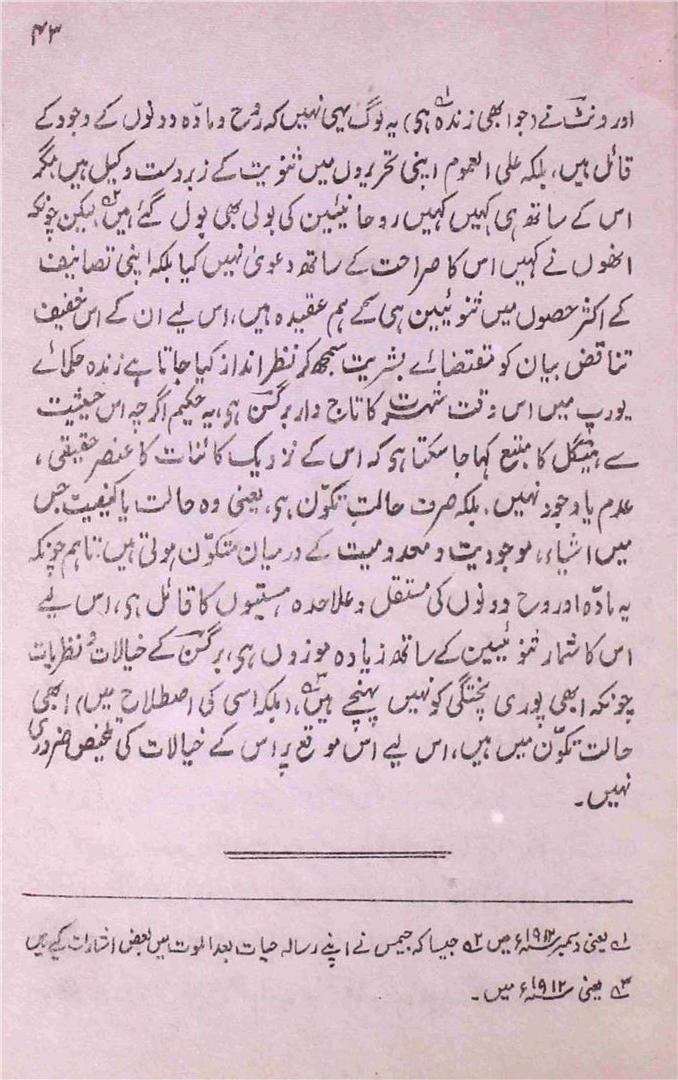 ۴۳
اور ونٹ نے (جو ابھی زندہ ہی)۱ یہ لوگ یہی نہیں کہ روح و مادّہ دونوں کے وجود کے
قائل ہیں، بلکہ علی العموم اپنی تحریروں میں ثنویت کے زبردست وکیل ہیں مگر
اس کے ساتھ ہی کہیں کہیں روحانیئین کی بولی بھی بول گئے ہیں۲، لیکن چونکہ
انھوں نے کہیں اس کا صراحت کے ساتھ دعویٰ نہیں کیا بلکہ اپنی تصانیف
کے اکثر حصوں میں ثنوئیین ہی کے ہم عقیدہ ہیں، اس لیے ان کے اس خفیف
تناقض بیان کو مقتضاے بشریت سمجھ کر نظر انداز کیا جاتا ہے زندہ حکماے
یورپ میں اس وقت شہرت کا تاج دار برگسن ہی، یہ حکیم اگرچہ اس حیثیت
سے ہیگل کا متبع کہا جا سکتا ہی کہ اس کے نزدیک کائنات کا عنصر حقیقی،
عدم یا وجود نہیں، بلکہ صرف حالتِ تکوّن ہی، یعنی وہ حالت یا کیفیت جس
میں اشیاء، موجودیت و معدومیت کے درمیان متکوّن ہوتی ہیں، تاہم چونکہ
یہ مادّہ اور روح دونوں کی مستقل و علاحدہ ہستیوں کا قائل ہی، اس لیے
اس کا شمار ثنوئیین کے ساتھ زیادہ موزوں ہی، برگسن کے خیالات و نظریات
چونکہ ابھی پوری پختگی کو نہیں پہنچے ہیں۳، (بلکہ اسی کی اصطلاح میں) ابھی
حالت تکوّن میں ہیں، اس لیے اس موقع پر اس کے خیالات کی تلخیص ضروری
نہیں۔
۱ یعنی دسمبر ۱۹۱۲ء میں ۲ جیسا کہ جیمس نے اپنے رسالہ حیات بعد الموت میں بعض اشارات کیے ہیں
۳ یعنی ۱۹۱۲ء میں۔